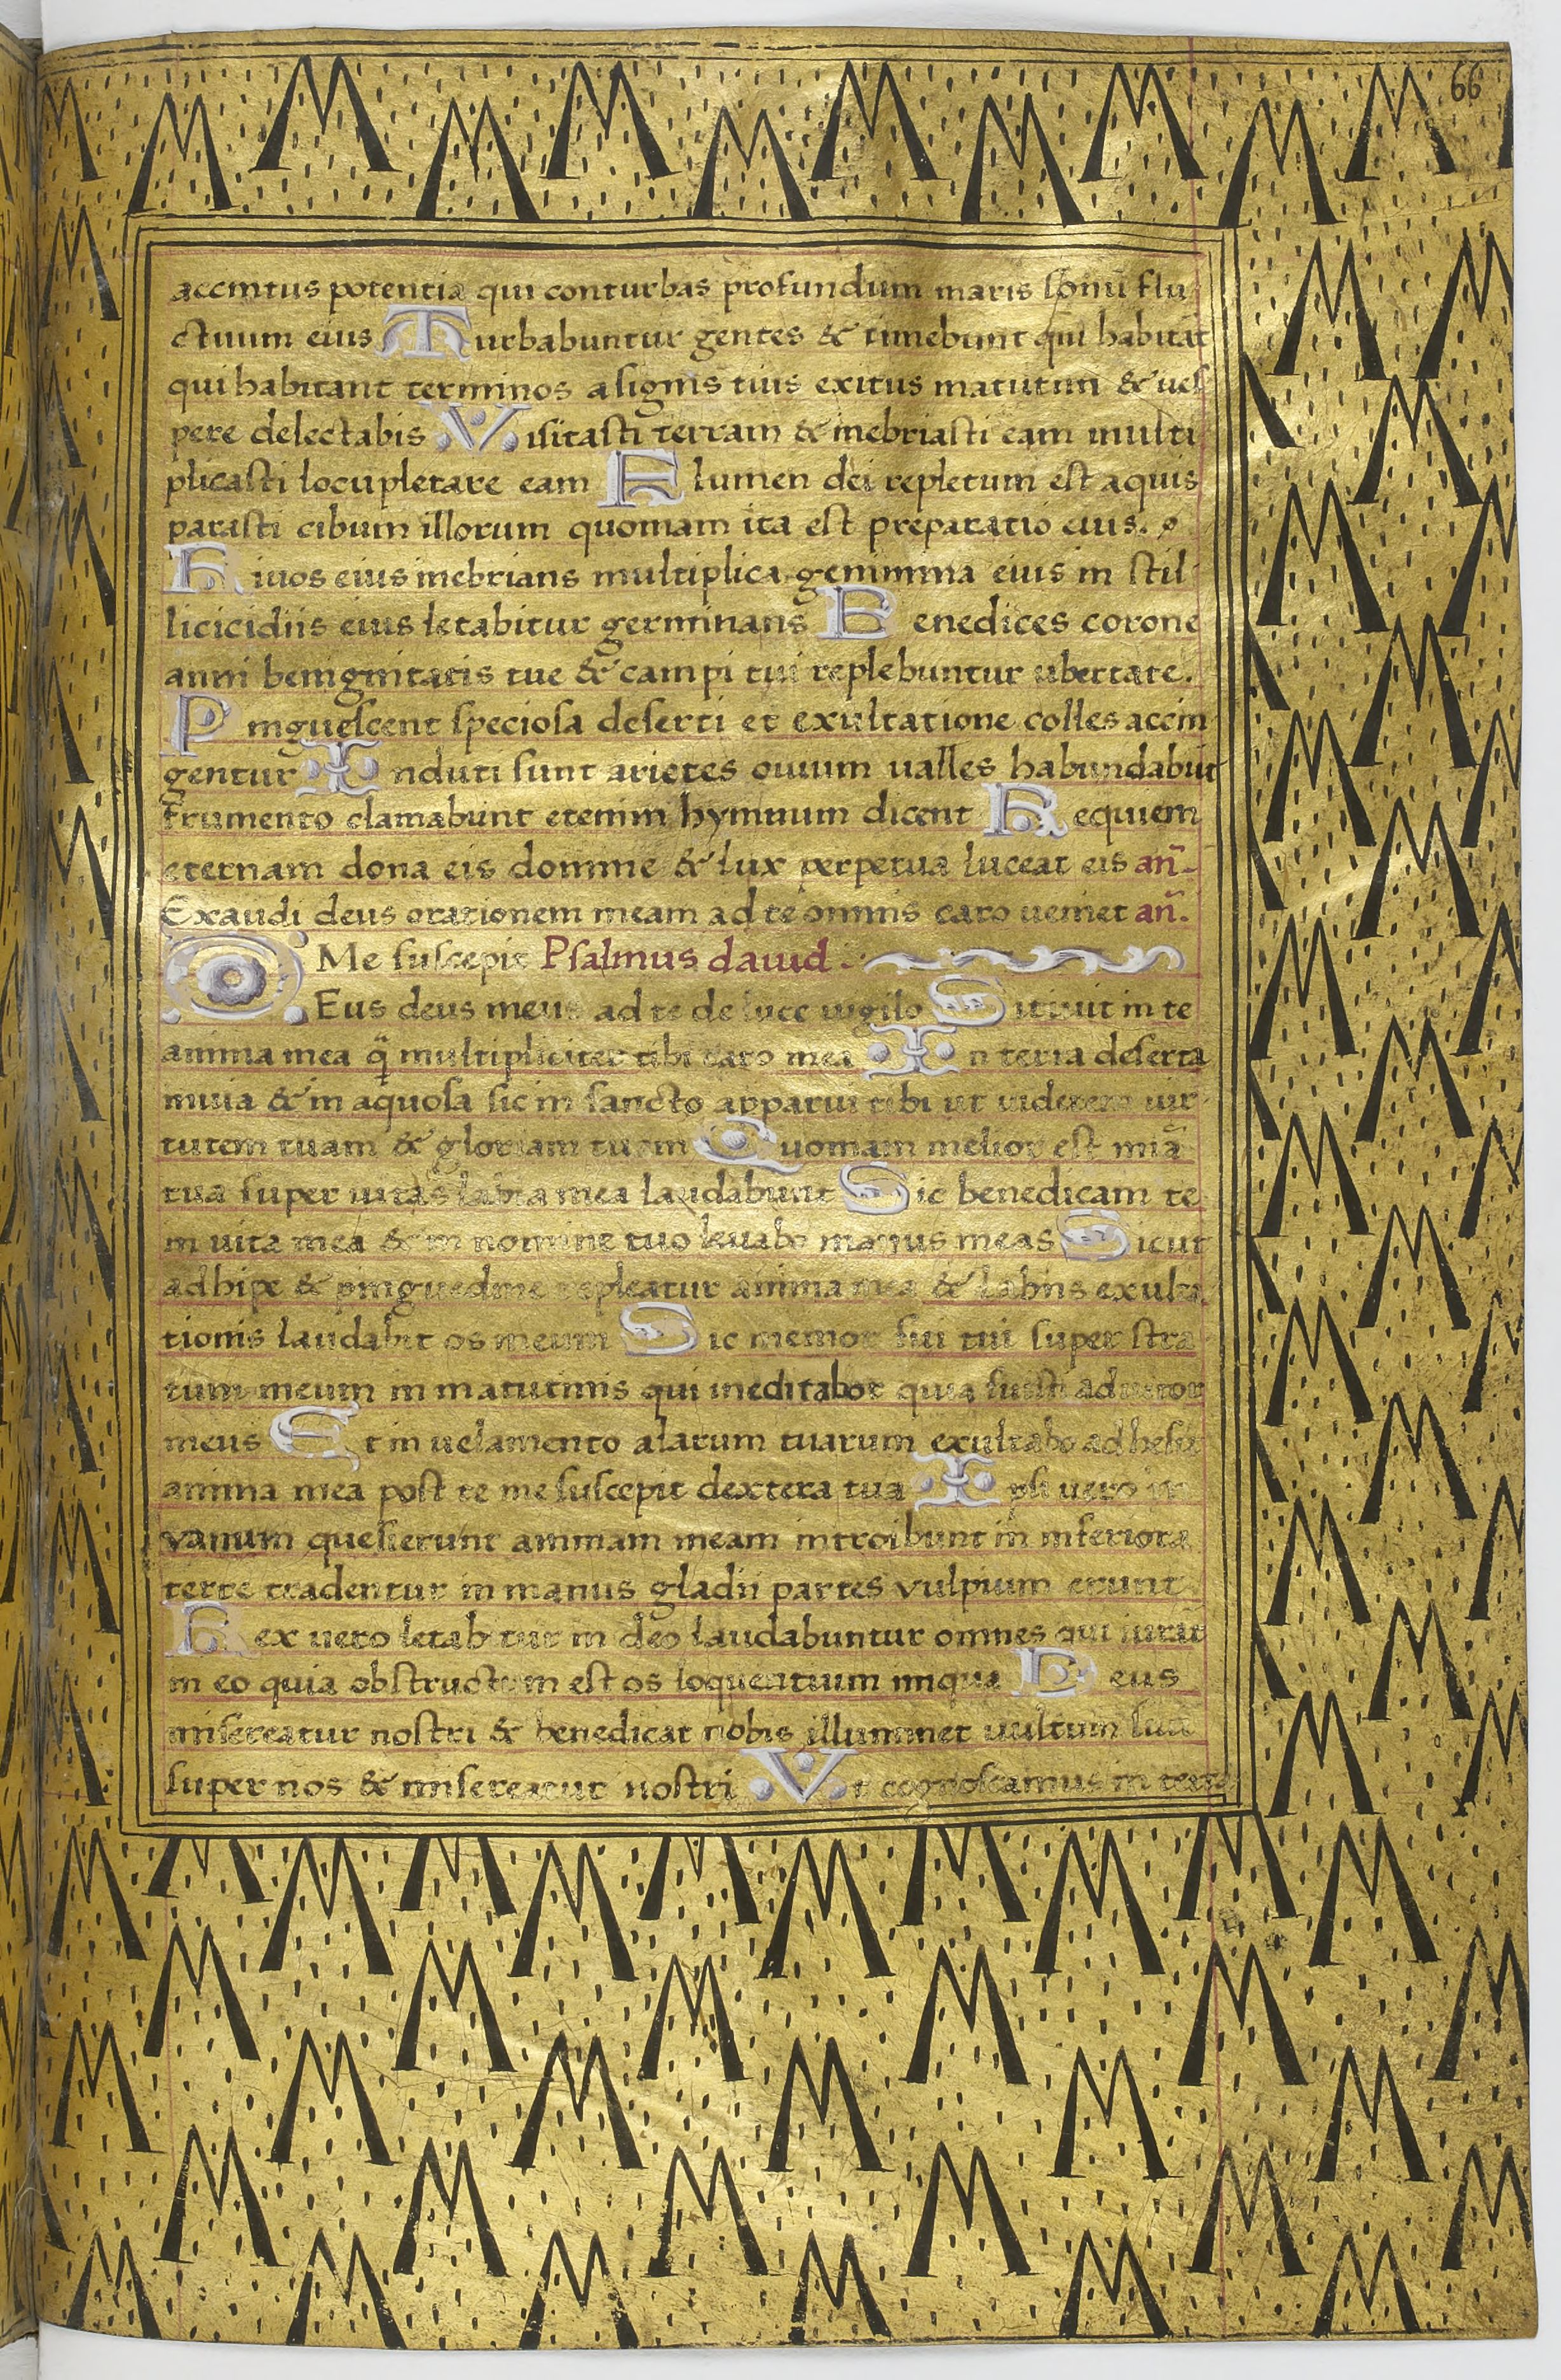 66
accintus potentia qui conturbas profundum maris sonũ flu
ctuum eius Turbabuntur gentes & timebunt qui habitãt
qui habitant terminos a signis tuis exitus matutini & ues
pere delectabis Visitasti terram & inebriasti eam multi
plicasti locupletare eam Flumen dei repletum est aquis
parasti cibum illorum quoniam ita est preparatio eius.
Riuos eius inebrians multiplica gemmina eius in stil
licicidiis eius letabitur germinans Benedices corone
anni benignitatis tue & campi tui replebuntur ubertate.
Pinguescent speciosa deserti et exultatione colles accin
gentur Induti sunt arietes ouium ualles habundabũt
frumento clamabunt etenim hymnum dicent Requiem
eternam dona eis domine & lux perpetua luceat eis añ.
Exaudi deus orationem meam ad te omnis caro ueniet añ.
Me suscepit Psalmus dauid.
DEus deus meus ad te de luce uigilo Sitiuit in te
anima mea q̃ multipliciter tibi caro mea In terra deserta
inuia & in aquosa sic in sancto apparui tibi ut uiderem uir
tutem tuam & gloriam tuam Quoniam melior est miã
tua super uitas labia mea laudabunt Sic benedicam te
in uita mea & in nomine tuo leuabo manus meas Sicut
adhipe & pinguedine repleatur anima mea & labiis exulta
tionis laudabit os meum Sic memor fui tui super stra
tum meum in matutinis qui meditabor quia fuisti adiutor
meus Et in uelamento alarum tuarum exultabo adhesit
anima mea post te me suscepit dextera tua Ipsi uero in
vanum quesierunt animam meam introibunt in inferiora
terre tradentur in manus gladii partes vulpium erunt
Rex uero letabitur in deo laudabuntur omnes qui iurãt
in eo quia obstructum est os loquentium iniqua Deus
misereatur nostri & benedicat nobis illuminet uultum suũ
super nos & misereatur nostri Vt cognoscamus in terra